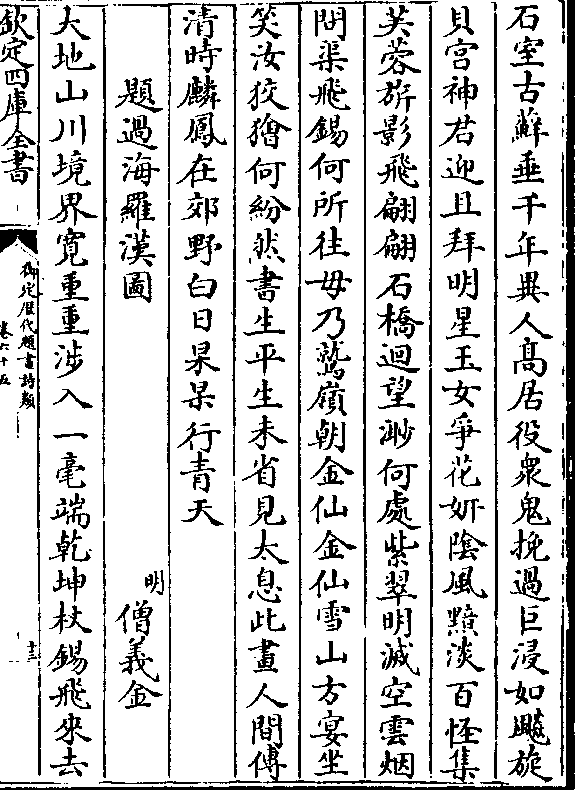 石室古蘚垂千年異人髙居役衆鬼挽過巨浸如飈旋
貝宫神君迎且拜明星玉女爭花妍陰風黯淡百怪集
芙蓉斾影飛翩翩石橋迴望渺何處紫翠明滅空雲烟
問渠飛錫何所往毋乃鷲嶺朝金仙金仙雪山方宴坐
笑汝狡獪何紛然書生平生未省見太息此畫人間傳
清時麟鳳在郊野白日杲杲行青天
題過海羅漢圖
明僧義金
大地山川境界寛重重涉入一毫端乾坤杖錫飛來去
欽定四庫全書
御定歴代題畫詩類
卷六十五
十三